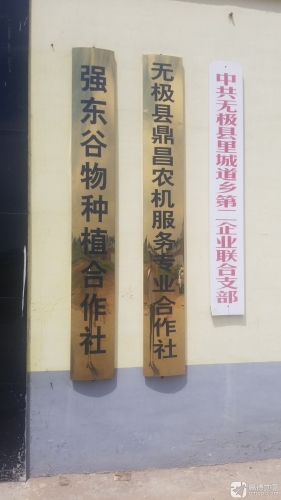 强东谷物种植合作社
无极县鼎昌农机服务专业合作社
中共无极县里城道乡第二企业联合支部